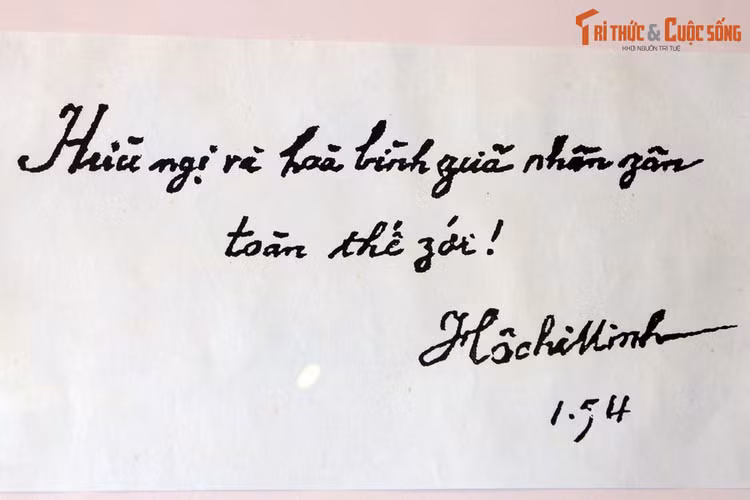 TRI THỨC & CUỘC SỐNG
KHƠI NGUỒN TRI TUỆ
Hữu ngị và hoà bình zuữa nhân zân
toàn thế zới!
Hồ Chí Minh
1.54